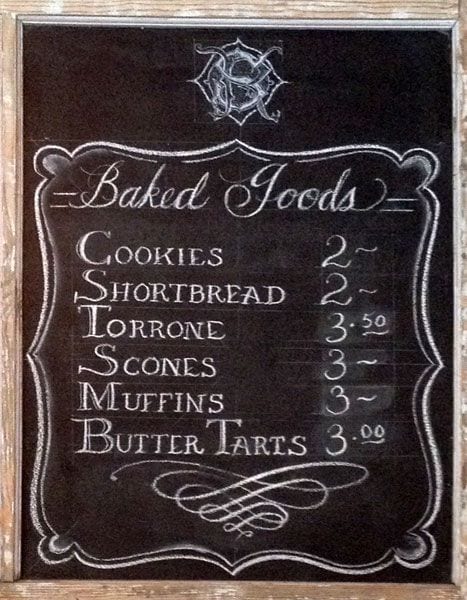 Baked Goods
COOKIES 2~
SHORTBREAD 2~
TORRONE 3.50
SCONES 3~
MUFFINS 3~
BUTTER TARTS 3.00